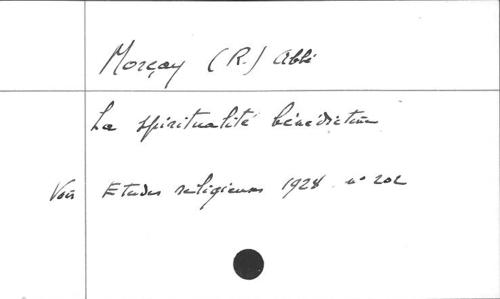 Morçay (R.) Abbé
La spiritualité bénédictine
Voir Etudes religieuses 1928 n° 202